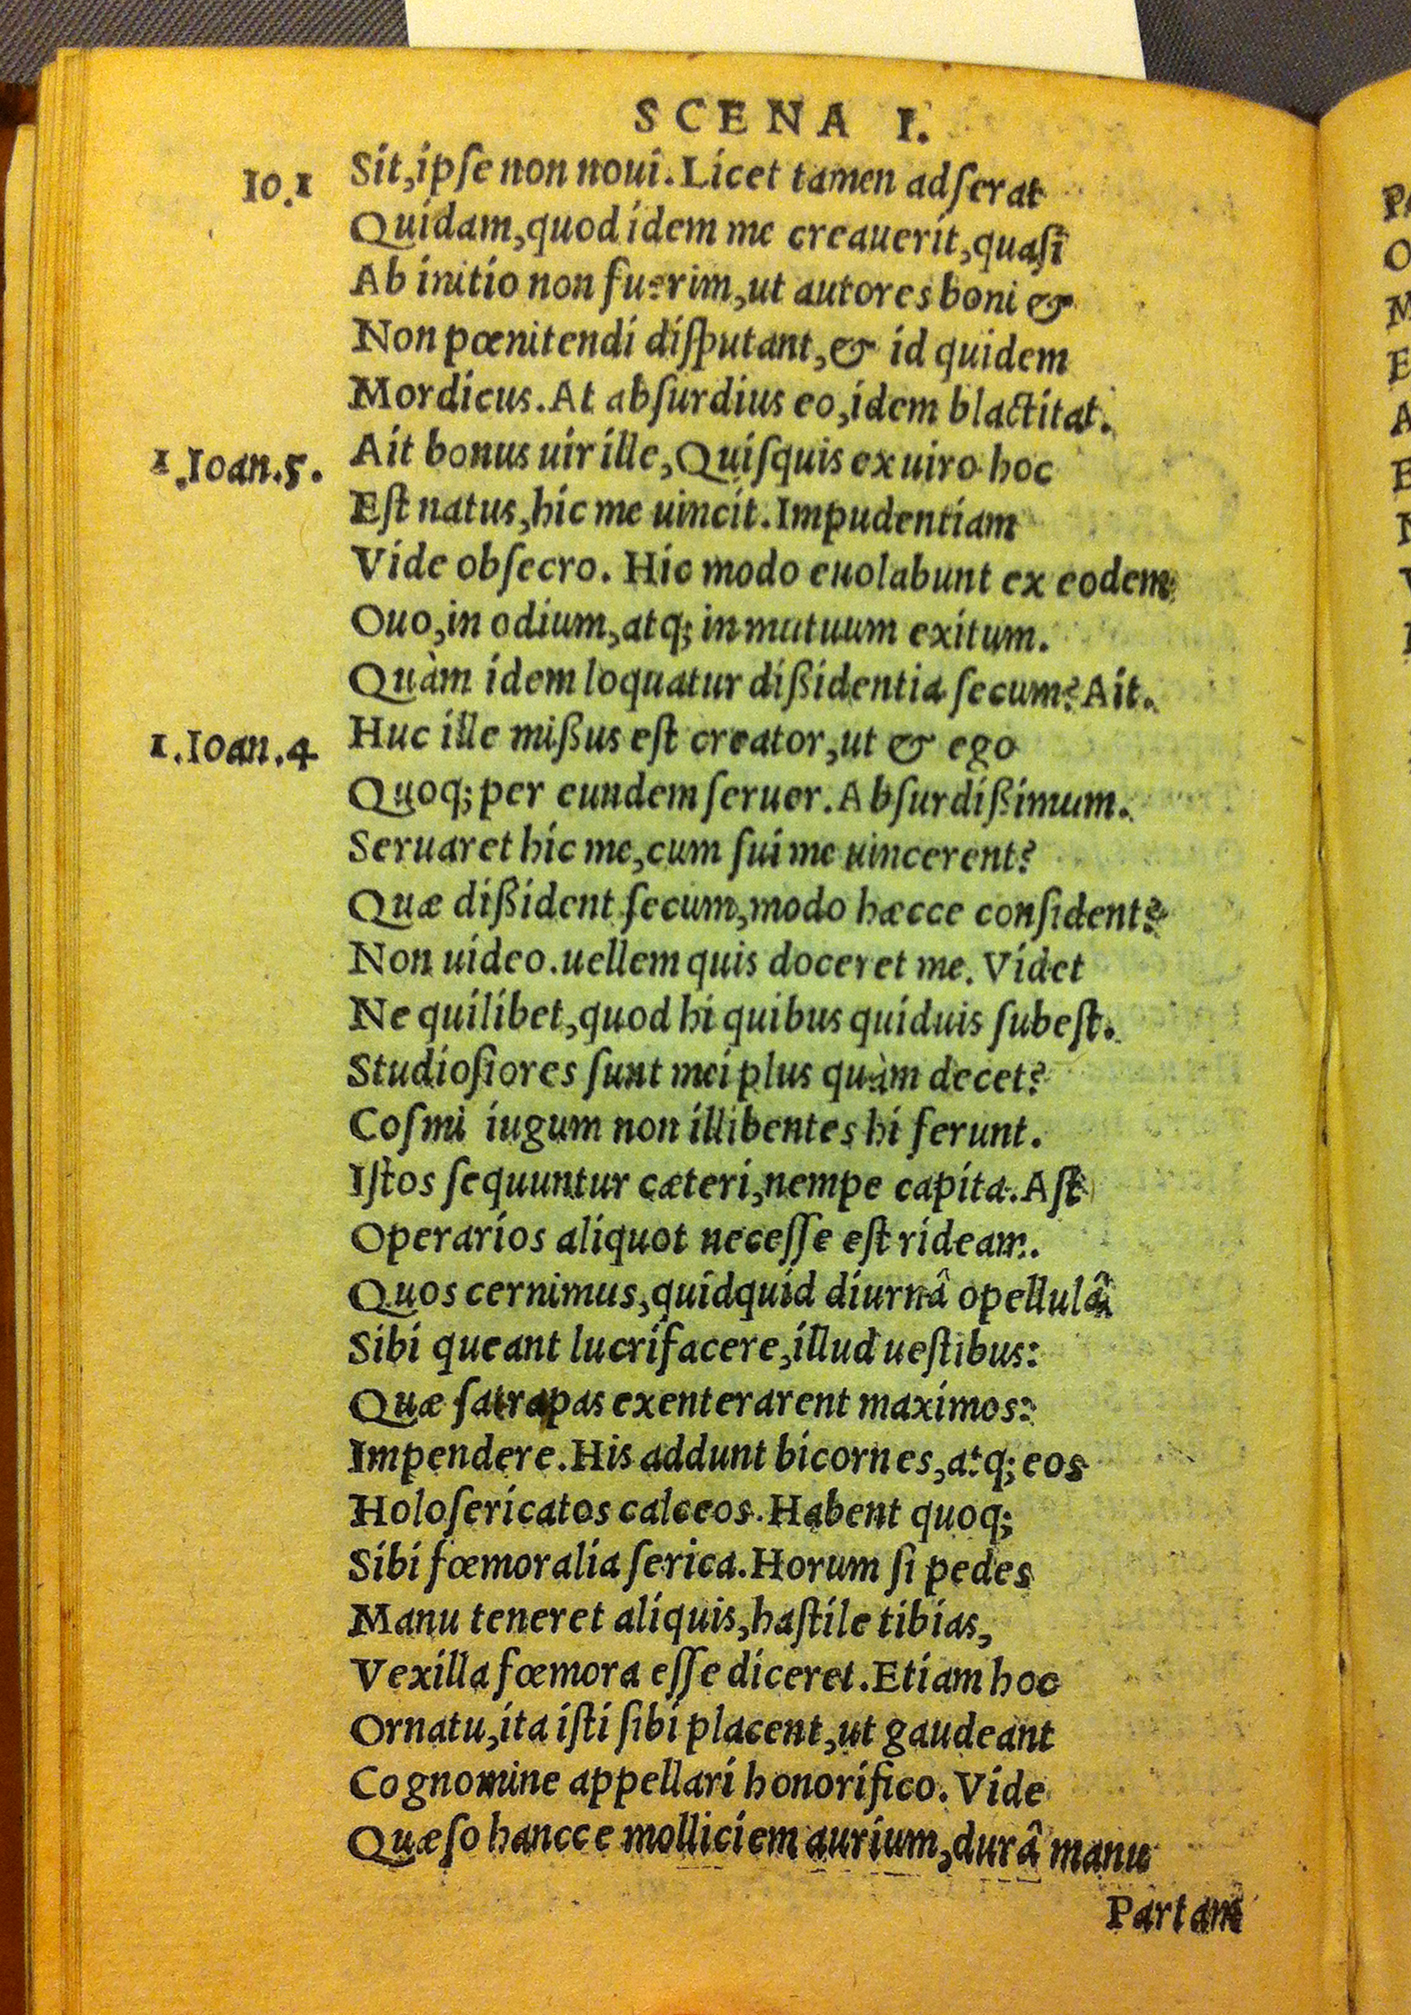 SCENA I.
Io.1 Sit,ipſe non noui.Licet tamen adſerat
Quidam,quod idem me creauerit,quaſi
Ab initio non fuerim,ut autores boni &
Non pœnitendi diſputant,& id quidem
Mordicus.At abſurdius eo,idem blactitat.
1.Ioan.5. Ait bonus uir ille,Quiſquis ex uiro hoc
Eſt natus,hic me uincit.Impudentiam
Vide obſecro. Hic modo euolabunt ex eodem
Ouo,in odium,atq; in mutuum exitum.
Quàm idem loquatur dißidentia ſecum?Ait.
1.Ioan.4 Huc ille mißus eſt creator,ut & ego
Quoq; per eundem ſeruer.Abſurdißimum.
Seruaret hic me,cum ſui me uincerent?
Quæ dißident ſecum,modo hæcce conſident?
Non uideo.uellem quis doceret me. Videt
Ne quilibet,quod hi quibus quiduis ſubeſt.
Studioſiores ſunt mei plus quàm decet?
Coſmi iugum non illibentes hi ferunt.
Iſtos ſequuntur cæteri,nempe capita.Aſt
Operarios aliquot neceſſe eſt rideam.
Quos cernimus,quidquid diurnâ opellulâ
Sibi queant lucrifacere,illud ueſtibus:
Quæ ſatrapas exenterarent maximos:
Impendere.His addunt bicornes,atq; eos
Holoſericatos calceos.Habent quoq;
Sibi fœmoralia ſerica.Horum ſi pedes
Manu teneret aliquis,haſtile tibias,
Vexilla fœmora eſſe diceret.Etiam hoc
Ornatu,ita iſti ſibi placent,ut gaudeant
Cognomine appellari honorifico. Vide
Quæſo hancce molliciem aurium,durâ manu
Partam